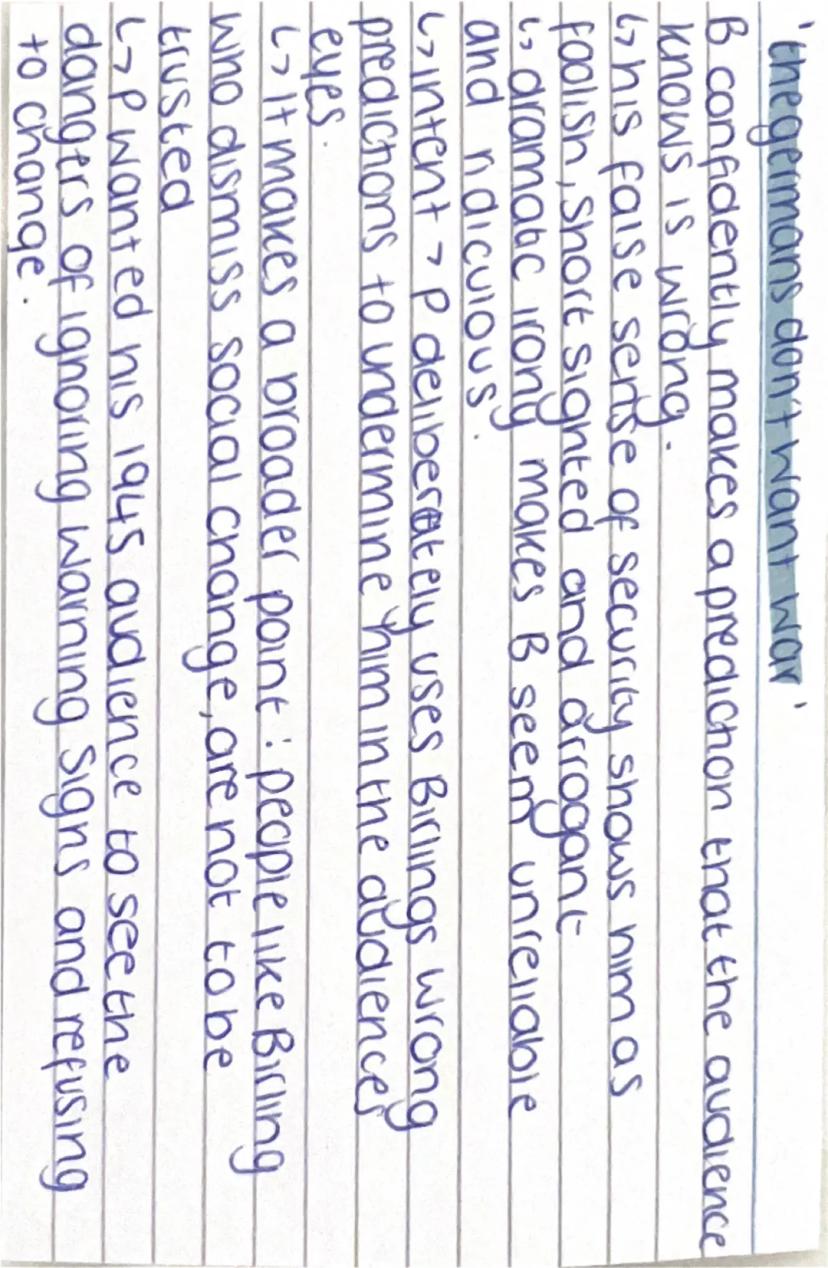 'the germans don't want war'
B confidently makes a prediction that the audience
knows is wrong.
↳ his false sense of security shows him as
foolish, short sighted and arrogant
↳ dramatic irony makes B seem unreliable
and ridiculous.
↳ intent > P deliberately uses Birlings wrong
predictions to undermine him in the audiences
eyes.
↳ It makes a broader point : people like Birling
who dismiss social change, are not to be
trusted
↳ P wanted his 1945 audience to see the
dangers of ignoring warning signs and refusing
to change.